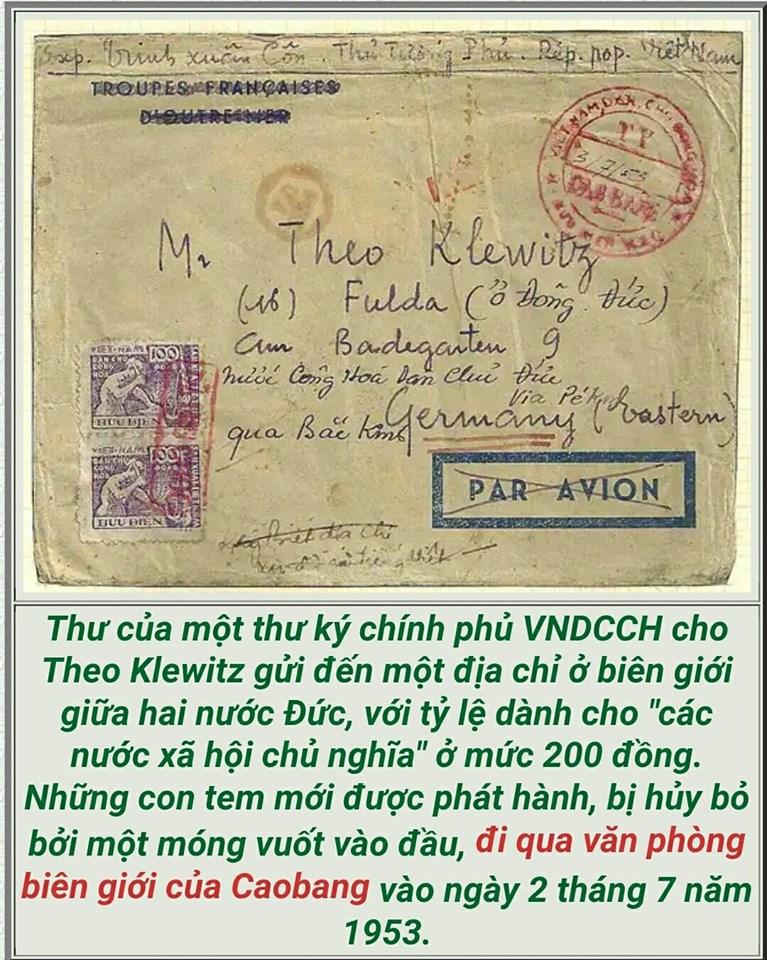 Exp. Trịnh Xuân Cồn. Thủ Tướng Phủ. Rép. pop. Việt Nam
TROUPES FRANÇAISES
D'OUTRE-MER
VIET NAM DAN CHU CONG HOA
3/7/53
CAO BANG
Mr Theo Klewitz
(16) Fulda (ở Đông Đức)
am Badegarten 9
nước Cộng Hoá Dan Chủ Đức
Via Pékin
qua Bắc Kinh Germany (Eastern)
VIET-NAM 100
DAN CHU
CONG
HOA
BUU ĐIEN
VIET-NAM 100
DAN CHU
CONG
HOA
BUU ĐIEN
PAR AVION
Thư của một thư ký chính phủ VNDCCH cho
Theo Klewitz gửi đến một địa chỉ ở biên giới
giữa hai nước Đức, với tỷ lệ dành cho "các
nước xã hội chủ nghĩa" ở mức 200 đồng.
Những con tem mới được phát hành, bị hủy bỏ
bởi một móng vuốt vào đầu, đi qua văn phòng
biên giới của Caobang vào ngày 2 tháng 7 năm
1953.